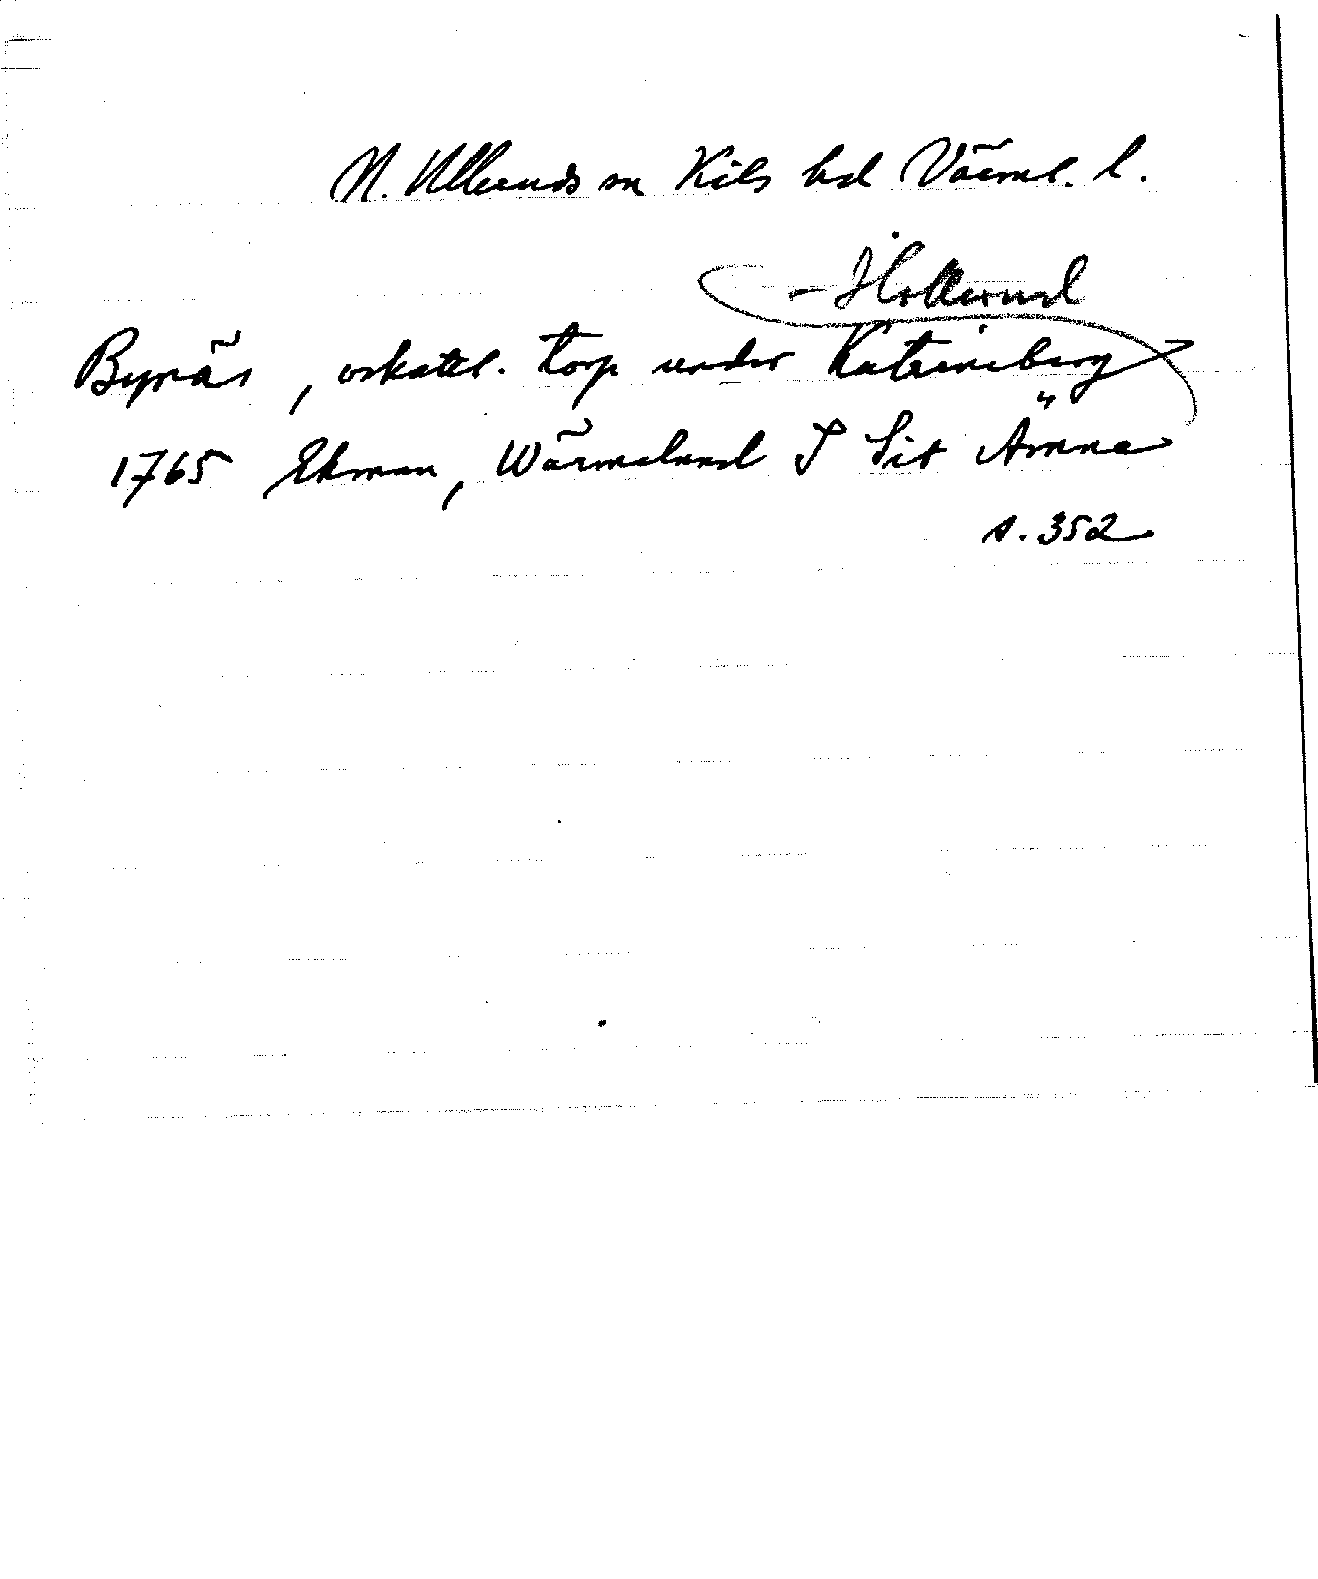 N. Ulleruds sn Kils hd Värml. l.
Bynäs, oskattl. torp under Katrineberg
1765 Ekman, Wärmeland I Sit Ämne
s. 352